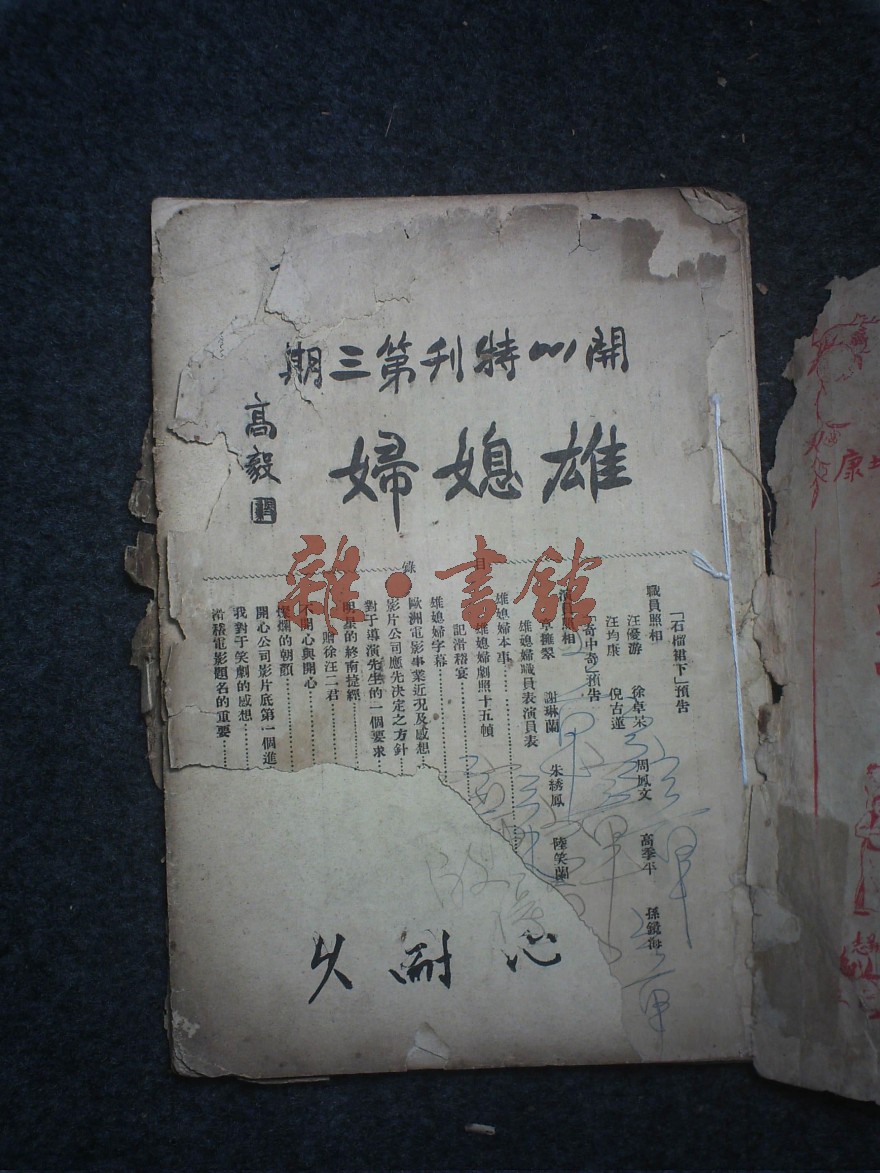 開心特刊第三期
雄媳婦
高毅
目錄
「石榴裙下」預告
職員照相
汪優游 徐卓呆 周鳳文 高季平 孫鏡海
汪均康 倪古蓮
「奇中奇」預告
演員照相
卓擁翠 謝琳蘭 朱綉鳳 陸笑蘭
雄媳婦職員表演員表
雄媳婦本事
雄媳婦劇照十五幀
記滑稽宴
雄媳婦字幕
歐洲電影事業近況及感想
影片公司應先決定之方針
對于導演先生的一個要求
明星的終南捷經
贈徐汪二君
不開心與開心
燦爛的朝顏
開心公司影片底第一個進
我對于笑劇的感想
滑稽電影題名的重要
心耐久
雜·書館
康